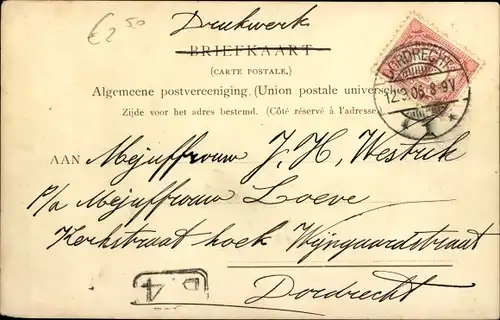 €2.50
Drukwerk
BRIEFKAART
(CARTE POSTALE.)
Algemeene postvereeniging. (Union postale universelle)
Zijde voor het adres bestemd. (Côté réservé à l'adresse)
DORDRECHT
12.3.06. 8-9V
1
AAN Mejuffrouw J, H, Westrik
p/a Mejuffrouw Loeve
Kerkstraat hoek Wijngaardstraat
Dordrecht
D
4